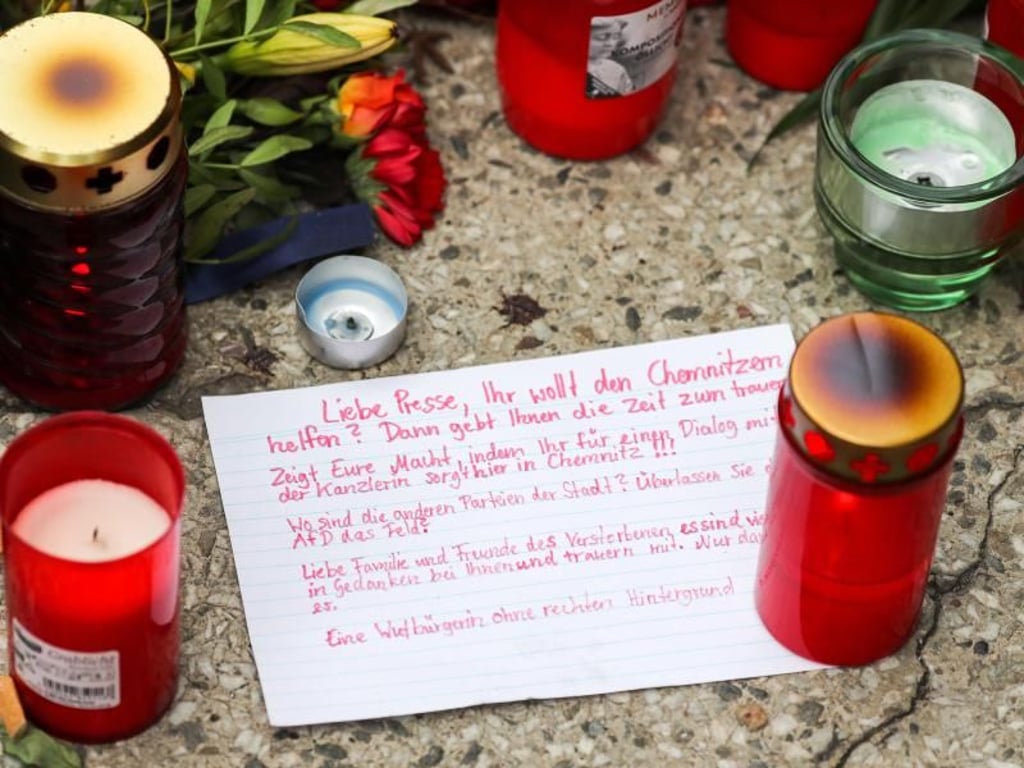 Liebe Presse, Ihr wollt den Chemnitzern
helfen? Dann gebt Ihnen die Zeit zum trauer
Zeigt Eure Macht, indem Ihr für einen Dialog mi
der Kanzlerin sorgt hier in Chemnitz !!!
Wo sind die anderen Parteien der Stadt? Überlassen Sie
AfD das Feld?
Liebe Familie und Freunde des Verstorbenen, es sind
in Gedanken bei Ihnen und trauern mit. Nur
es.
Eine Wutbürgerin ohne rechten Hintergrund
Grablicht